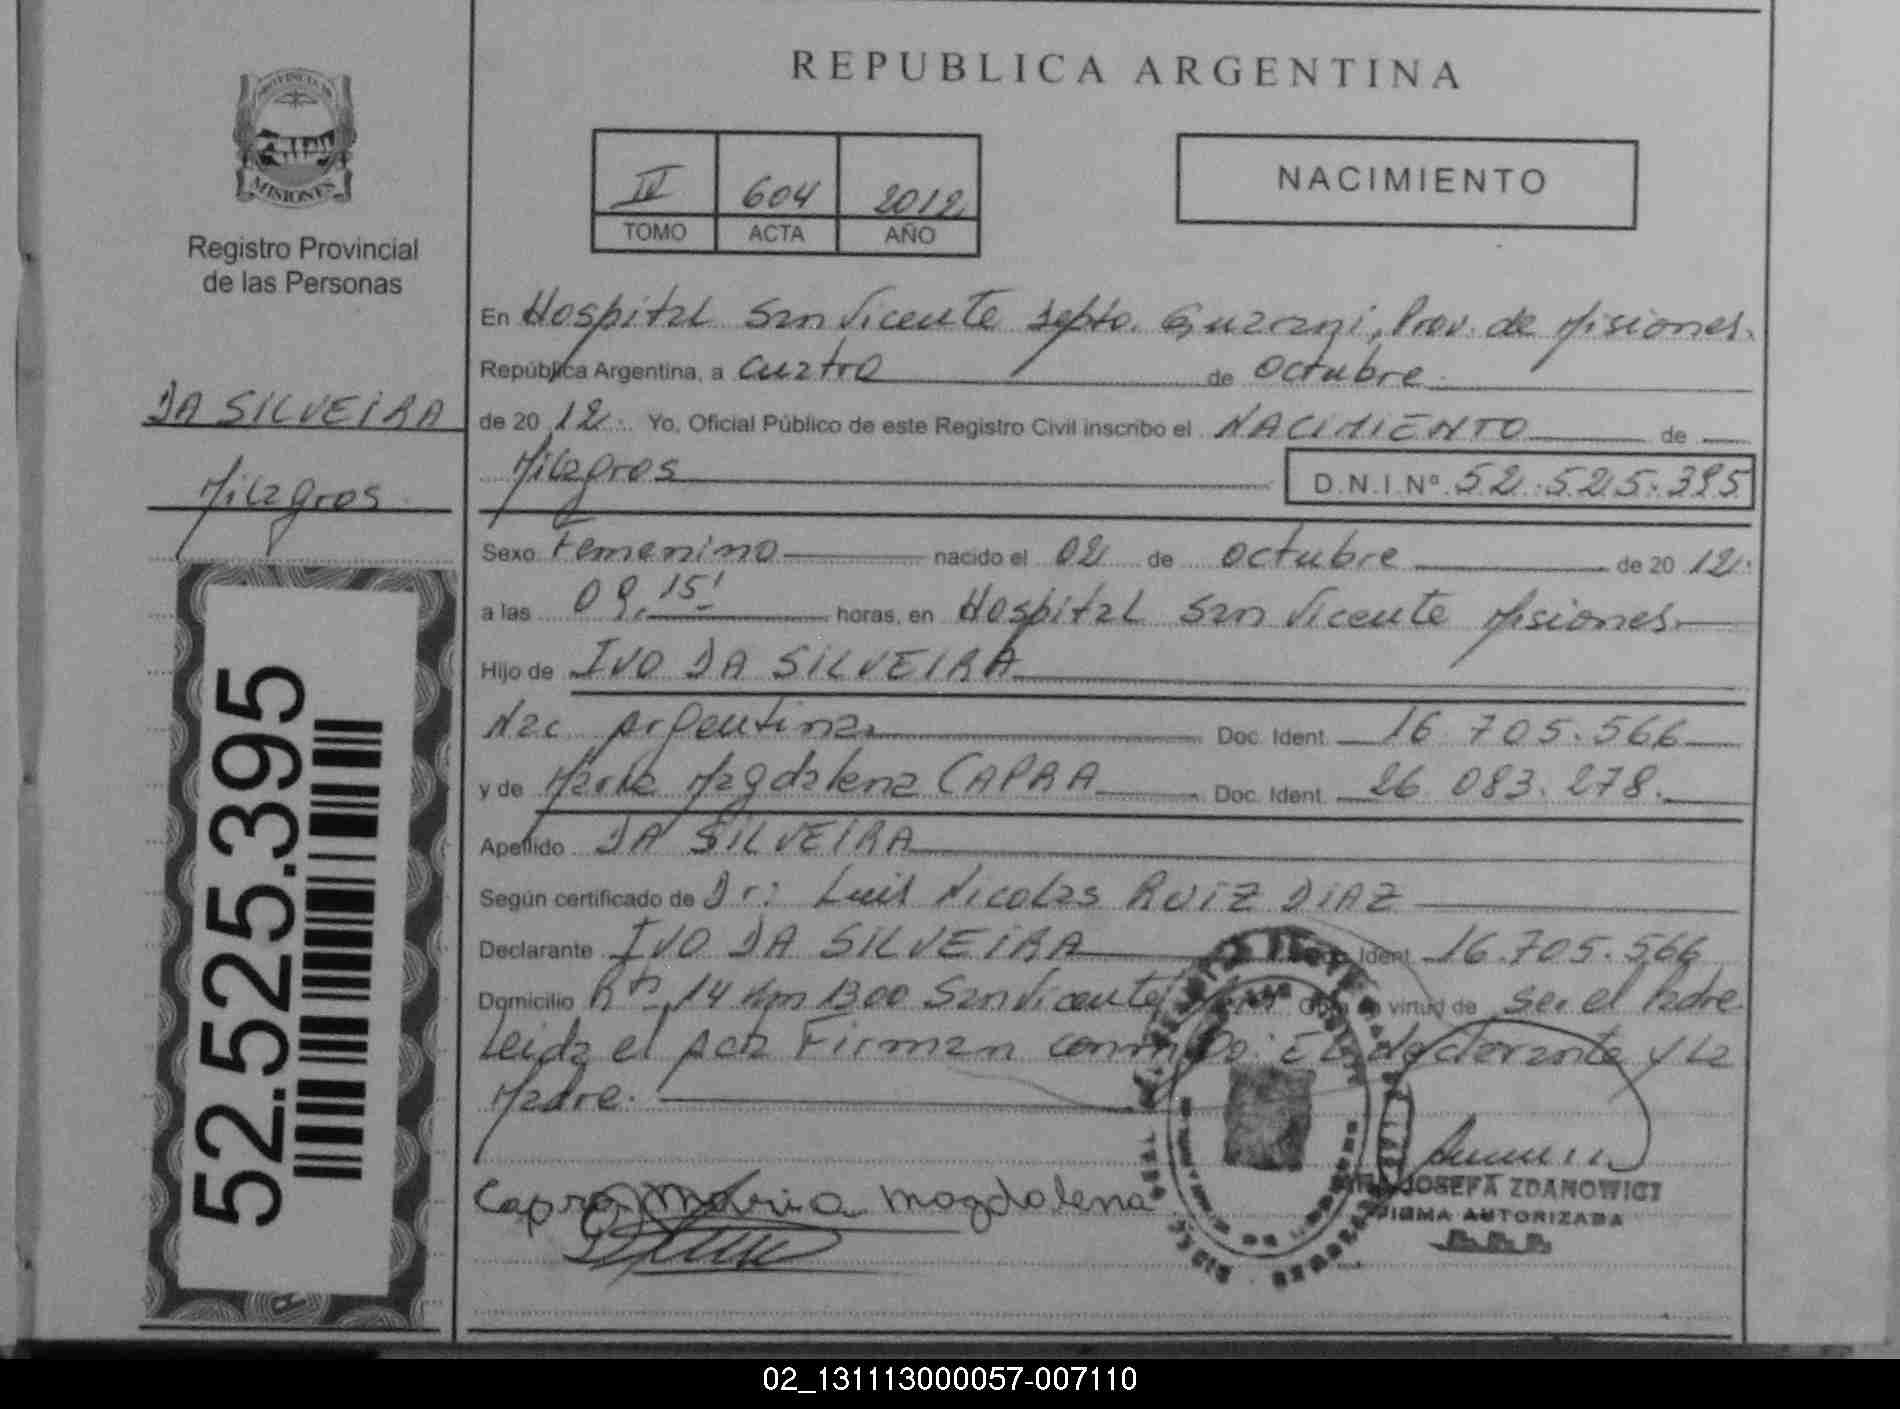 REPUBLICA ARGENTINA
PROVINCIA DE
MISIONES
Registro Provincial
de las Personas
IV 604 2012
TOMO ACTA AÑO
NACIMIENTO
DA SILVEIRA
Milagros
52.525.395
En Hospital San Vicente Depto. Guarani, Prov. de Misiones.
República Argentina, a cuatro de octubre
de 20 12. Yo, Oficial Público de este Registro Civil inscribo el NACIMIENTO de
Milagros D.N.I.Nº 52.525.395
Sexo Femenino nacido el 02 de octubre de 20 12.
a las 09.15' horas, en Hospital San Vicente Misiones.
Hijo de IVO DA SILVEIRA
Nac. Argentina Doc. Ident. 16.705.566
y de María Magdalena CAPRA Doc. Ident. 26.083.278.
Apellido DA SILVEIRA
Según certificado de Dr: Luis Nicolas RUIZ DIAZ
Declarante IVO DA SILVEIRA Doc. Ident. 16.705.566
Domicilio Rta 14 Km 1300 San Vicente Obra en virtud de ser el Padre
Leida el acta Firman conmigo: El declarante y la
Madre.
Capra Maria Magdalena
JOSEFA ZDANOWICZ
FIRMA AUTORIZADA
02_131113000057-007110